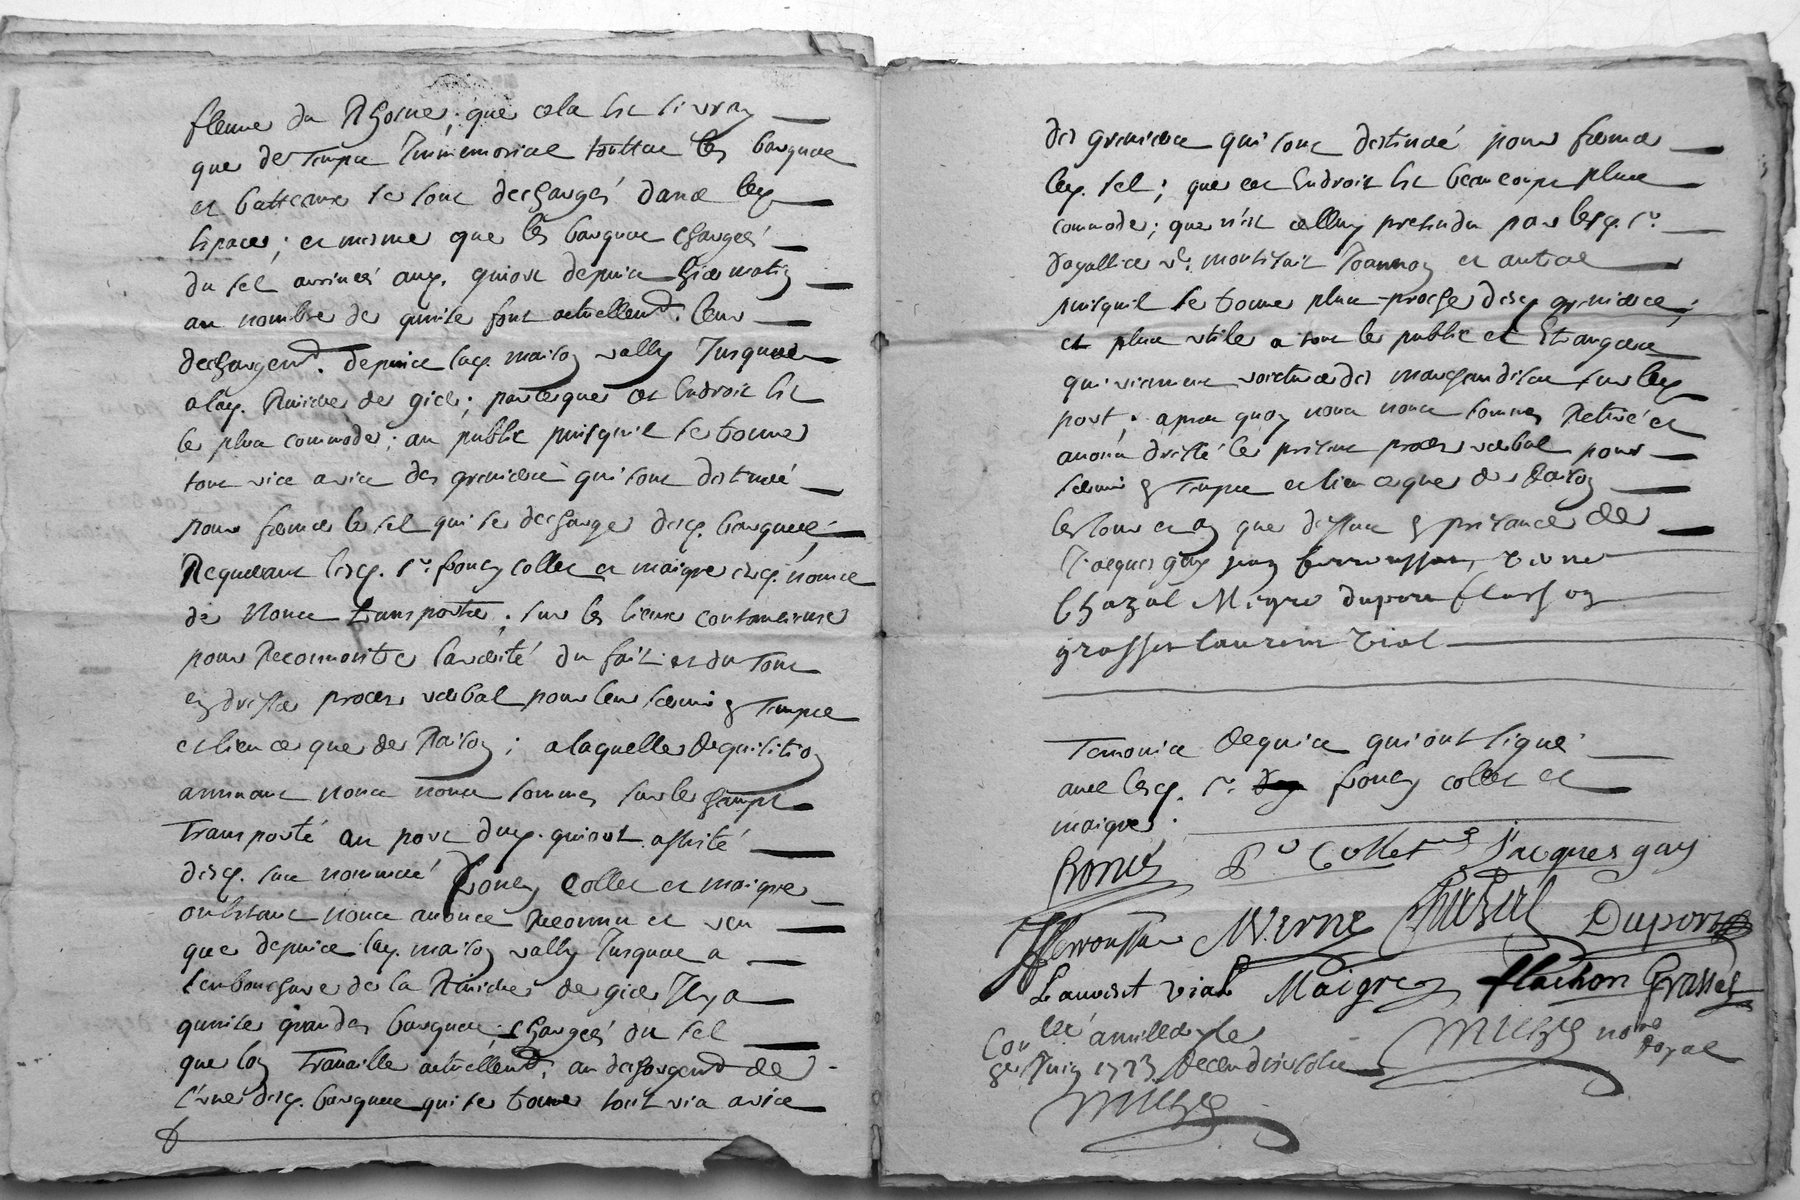 fleuve du Rhosne; que cela est si vray
que de Temps Immemorial touttes les barques
et batteaux se sont deschargés dans led.
Espace; et mesme que les barques chargées
du sel arrivées aux. depuis hier matin
au nombre de quinse font actuellemt. leur
deschargemt. depuis lad. maison vally Jusques
alad. Riviere de gier; parcesque cet Endroit Est
le plus commode; au public puisquil se trouve
tout vis a vis des greniers qui sont destinés
pour fermer le sel qui se descharge desd. barques;
Requerant lesd. Srs. collet et maigre esd. noms
de Nous transporter; sur les lieux contantieux
pour Reconnoitre laverité du fait et du Tout
en dresser proces verbal pour leur servir En Temps
et lieu ce que de Raison; alaquelle Requisition
annuant nous nous sommes sur le champt
Transporté au port dud. assisté
desd. sus nommés collet et maigre
ou Estant nous avons Reconnu et veu
que depuis lad. maison vally Jusques a
lenbouchure de la Riviere de gier Il y a
quinse grandes barques; chargées du sel
que lon Travaille actuellemt. au deschargemt de
l'une desd. barques qui se trouve tout vis a vis
des greniers qui sont destinés pour fermer
led. sel; que cet Endroit Est beaucoupt plus
commode; que n'est celluy pretendu par lesd. Srs.
et autres
puisquil se trouve plus proche desd. greniers;
et plus utile a tout le public et Etrangers
qui viennent voicturer des marchandises sur led.
port; apres quoy nous nous sommes Retiré et
avons dressé le present proces verbal pour
servir En Temps et lieu ceque de Raison
les jour et an que dessus En presance de
Jacques gay verne
Chazal Migre duport flachon
grasset laurent vial
Temoins Requis qui ont signé
avec lesd. Srs. collet et
maigre.
Collet Jacques gay
M. Verne Chazal Duport
Lauvent vial Maigre flachon Grasset
Conllé le
Juin 1723
nore Royal